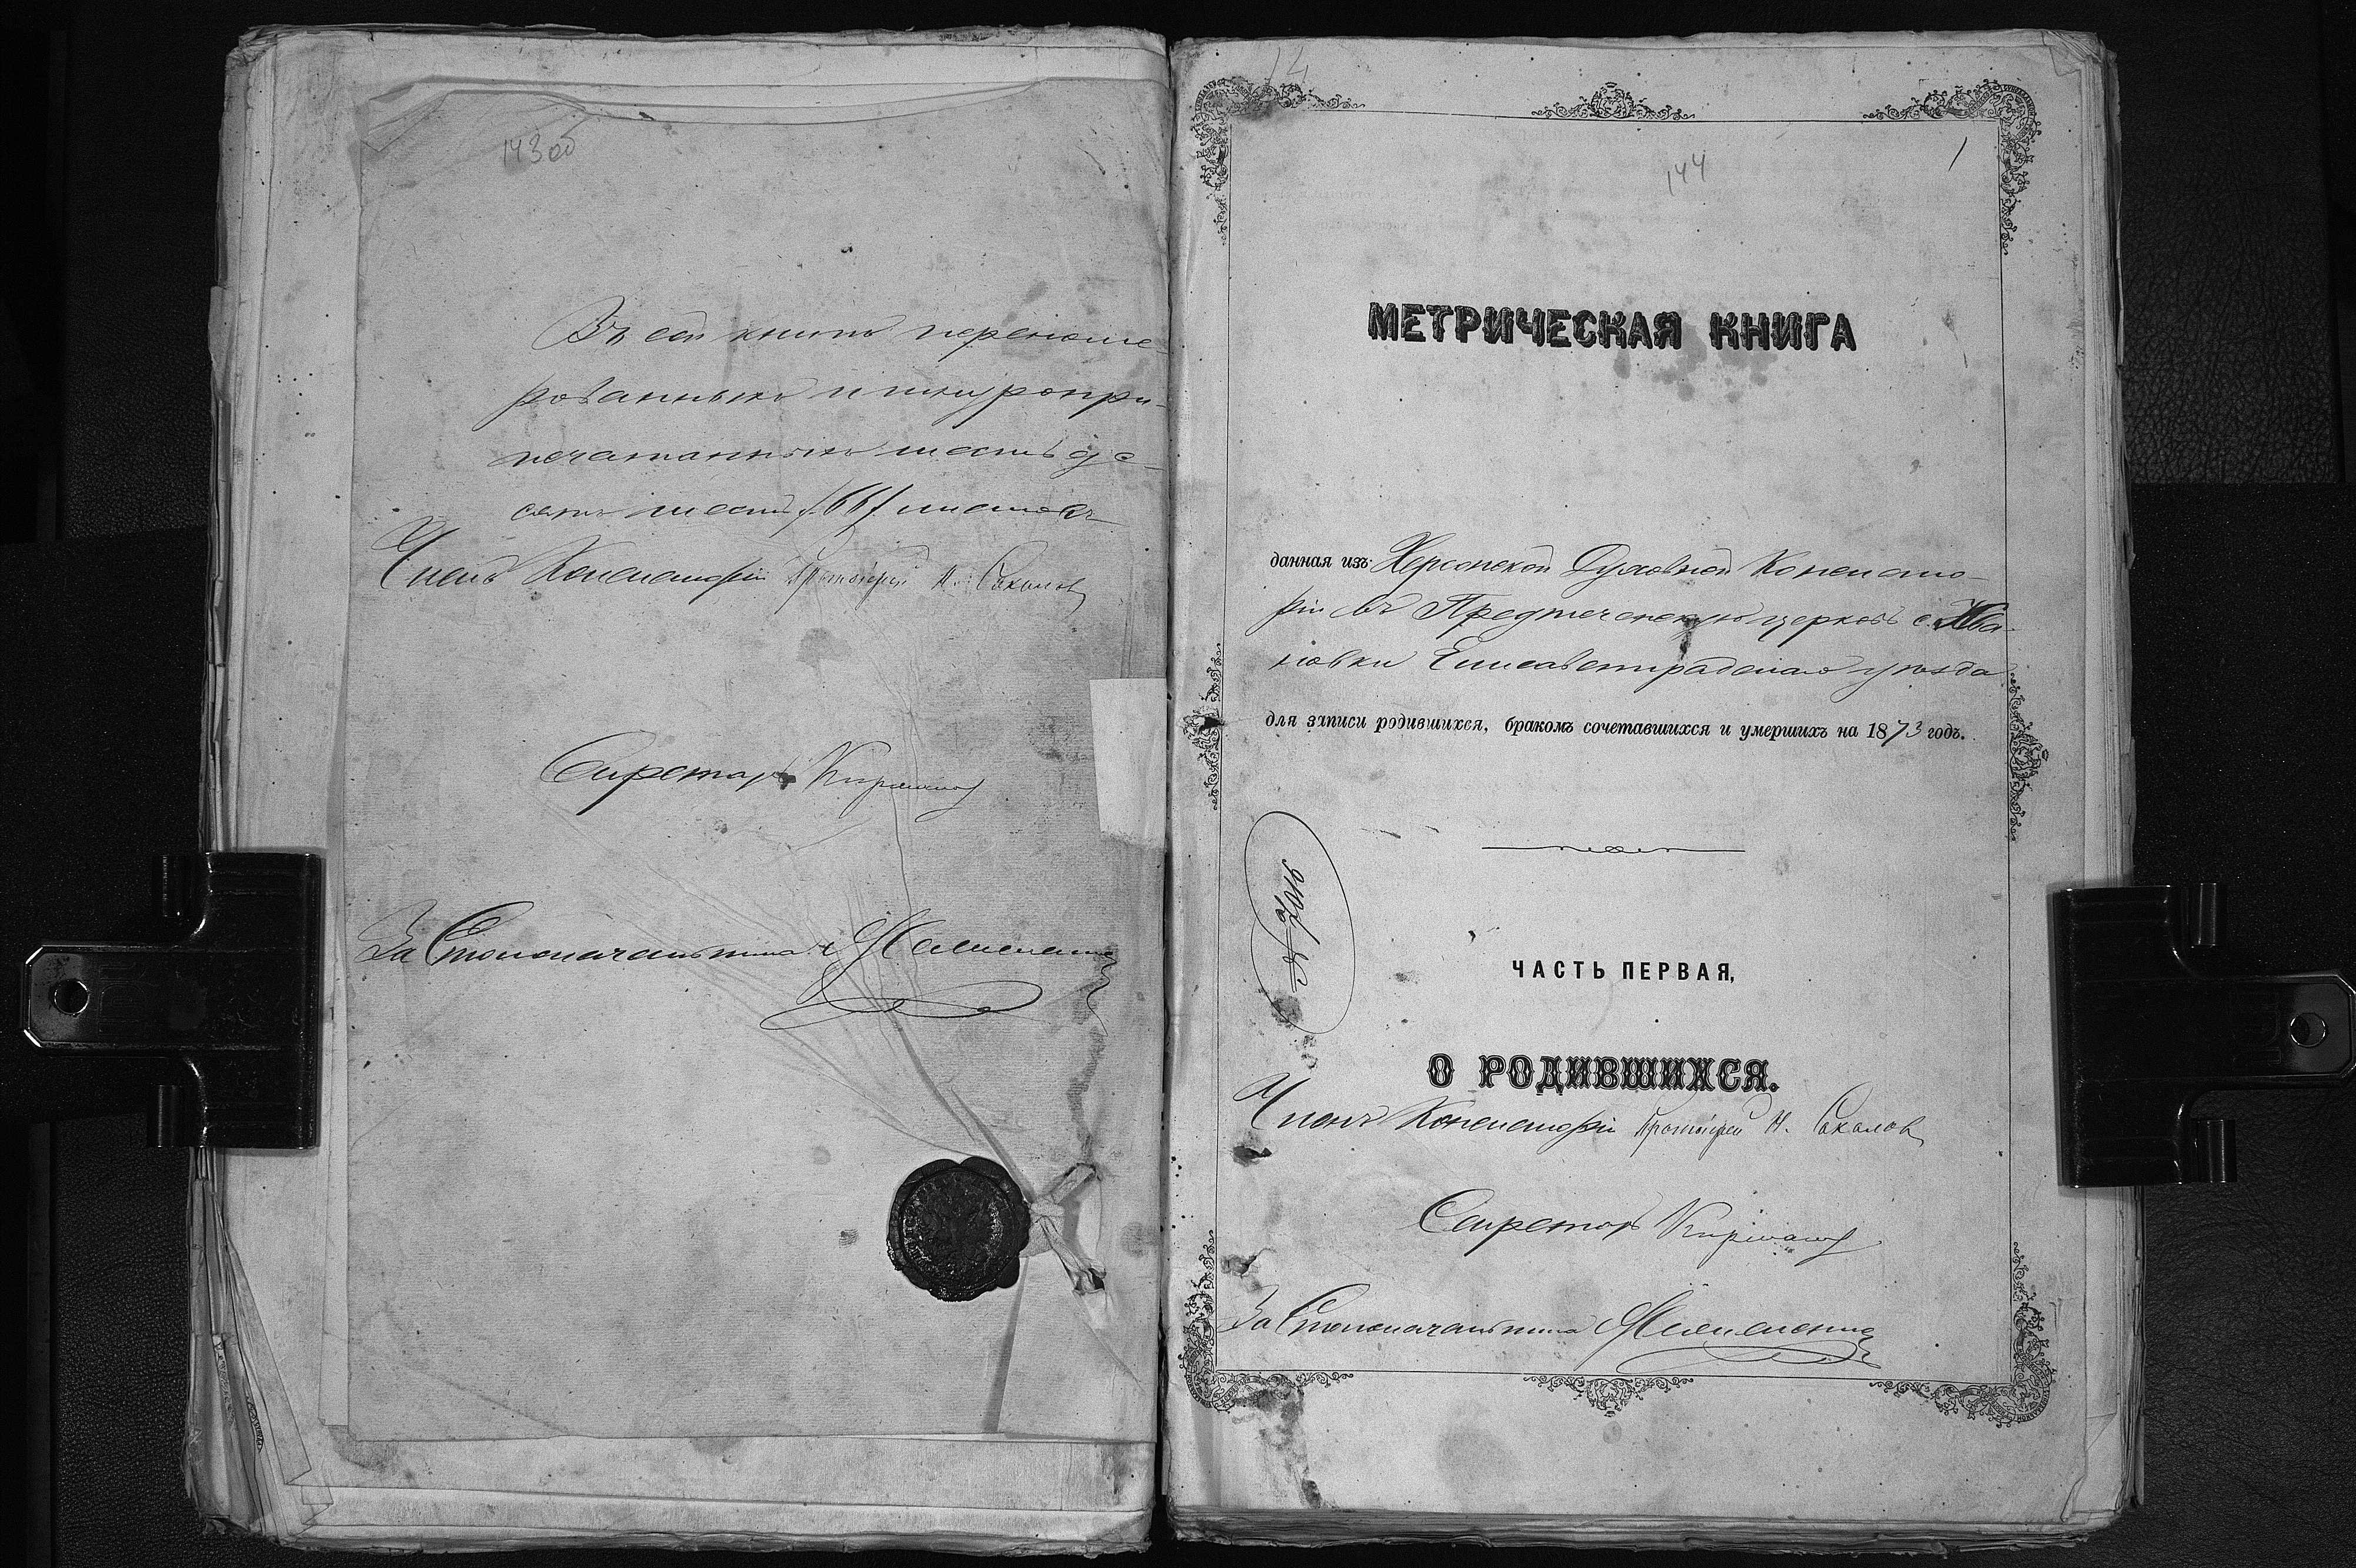 143об
Въ сей книгѣ перенуме-
рованныхъ и шнуропри-
печатанныхъ шесть де-
сятъ шесть /66/ листовъ
Членъ Консисторіи Протоіерей Н. Соколов
Секретарь
За Столоначальника
14
144
1
МЕТРИЧЕСКАЯ КНИГА
данная изъ Херсонской Духовной Консисто-
ріи въ Предтеченскую церковь с. Ива-
новки Елисаветградскаго уѣзда
для записи родившихся, бракомъ сочетавшихся и умершихъ на 1873 годъ.
ЧАСТЬ ПЕРВАЯ,
О РОДИВШИХСЯ.
Членъ Консисторіи Протоіерей Н. Соколов
Секретарь
За Столоначальника